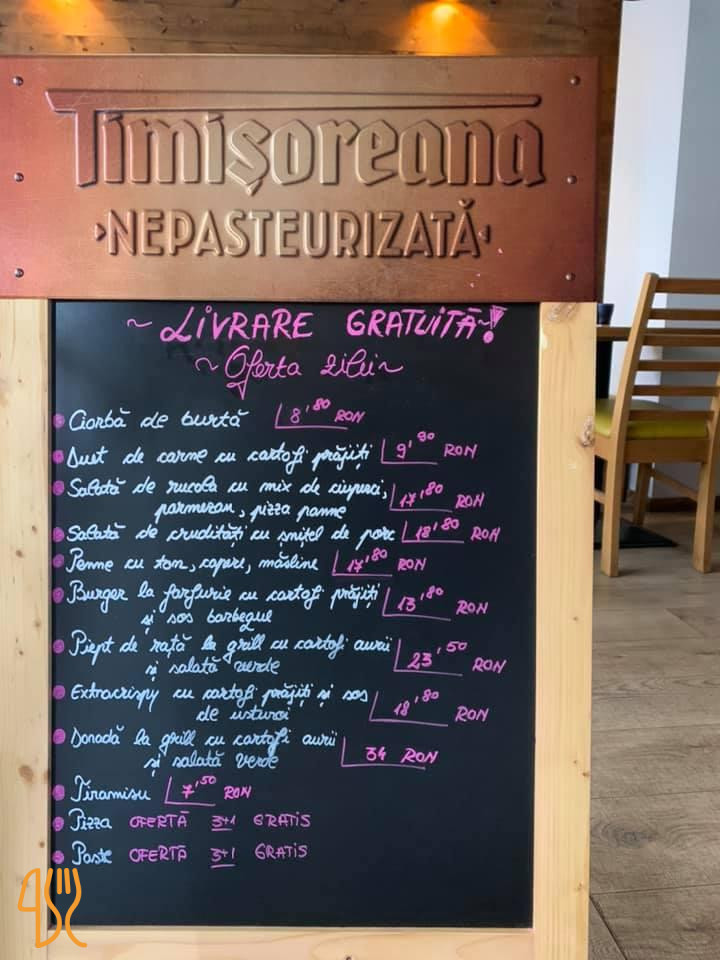 Timișoreana
NEPASTEURIZATĂ
~ LIVRARE GRATUITĂ~!
~ Oferta zilei ~
Ciorbă de burtă 8,80 RON
Duet de carne cu cartofi prăjiți 9,90 RON
Salată de rucola cu mix de ciuperci, 17,80 RON
parmezan, pizza panne
Salată de crudități cu șnițel de porc 18,80 RON
Penne cu ton, capere, măsline 17,80 RON
Burger la farfurie cu cartofi prăjiți 13,80 RON
și sos barbeque
Piept de rață la grill cu cartofi aurii 23,50 RON
și salată verde
Extracrispy cu cartofi prăjiți și sos 18,80 RON
de usturoi
Doradă la grill cu cartofi aurii 34 RON
și salată verde
Tiramisu 7,50 RON
Pizza OFERTĂ 3+1 GRATIS
Paste OFERTĂ 3+1 GRATIS